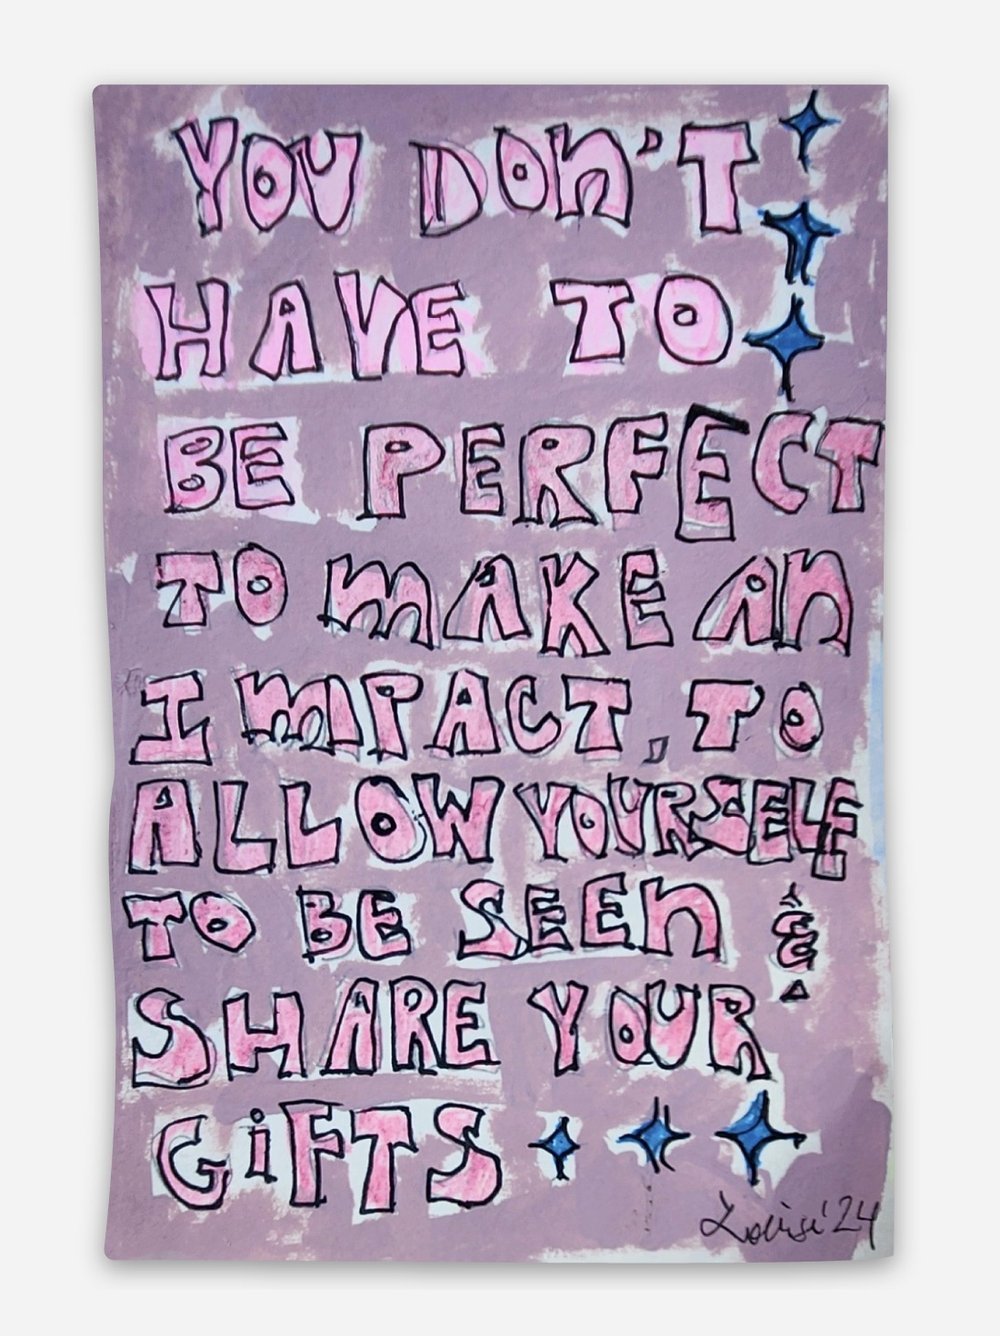 YOU DON'T
HAVE TO
BE PERFECT
TO MAKE AN
IMPACT, TO
ALLOW YOURSELF
TO BE SEEN &
SHARE YOUR
GIFTS
Louisi '24